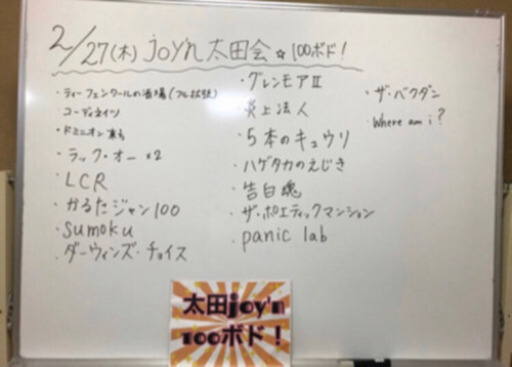 2/27(木) joy'n 太田会☆100ボド!
・ティーフェンタールの酒場(フル拡張)
コーディネイツ
・ドミニオン
・ラック・オー ×2
・LCR
・かるたジャン100
・sumoku
・ダーウィンズ・チョイス
・グレンモアⅡ
炎上法人
・5本のキュウリ
・ハゲタカのえじき
・告白魂
・ザ・ポエティックマンション
・panic lab
・ザ・バクダン
・Where am i?
太田joy'n
100ボド!